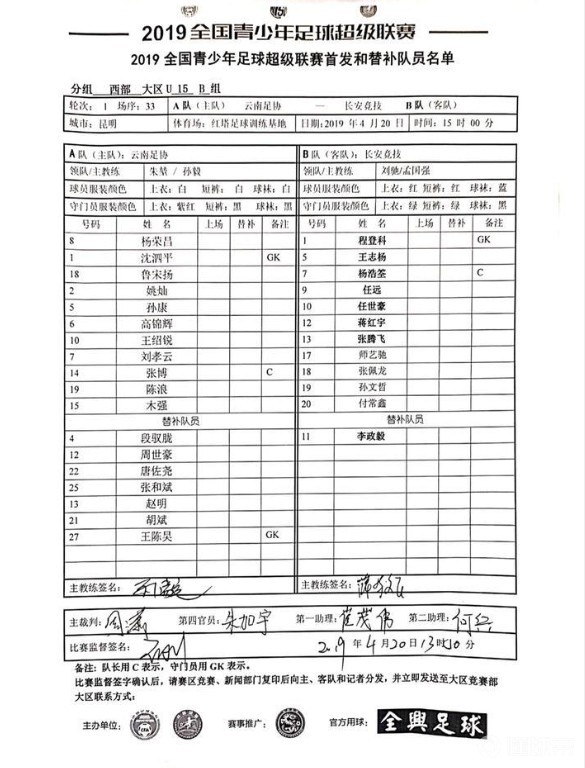 2019全国青少年足球超级联赛
2019 全国青少年足球超级联赛首发和替补队员名单
分组 西部 大区 U 15 B 组
轮次：1 场序：33 A 队（主队） 云南足协 — 长安竞技 B 队（客队）
城市：昆明 体育场：红塔足球训练基地 日期：2019 年 4 月 20 日 时间：15 时 00 分
A 队（主队）：云南足协 B 队（客队）：长安竞技
领队/主教练 朱堃 / 孙毅 领队/主教练 刘驰/孟国强
球员服装/颜色 上衣：白 短裤：白 球袜：白 球员服装/颜色 上衣：红 短裤：红 球袜：蓝
守门员服装/颜色 上衣：紫红 短裤：黑 球袜：黑 守门员服装/颜色 上衣：绿 短裤：绿 球袜：黑
号码 姓 名 上场 替补 备注 号码 姓 名 上场 替补 备注
8 杨荣昌 1 程登科 GK
1 沈泗平 GK 5 王志杨
18 鲁宋扬 7 杨浩筌 C
2 姚灿 9 任远
5 孙康 10 任世豪
6 高锦辉 12 蒋红宇
10 王绍锐 13 张腾飞
7 刘孝云 17 师艺驰
14 张博 C 18 张佩龙
19 陈浪 19 孙文哲
15 木强 20 付常鑫
替补队员 替补队员
4 段驭胧 11 李政毅
12 周世豪
22 唐佐尧
25 张和斌
13 赵明
21 胡斌
27 王陈昊 GK
主教练签名： 主教练签名：
主裁判： 第四官员：朱加宇 第一助理：崔茂伟 第二助理：何兴
比赛监督签名： 2019 年 4 月 20 日 13 时 30 分
备注：队长用 C 表示，守门员用 GK 表示。
比赛监督签字确认后，请赛区竞赛、新闻部门复印后向主、客队和记者分发，并立即发送至大区竞赛部
大区联系方式：
主办单位： 赛事推广： 官方用球： 全興足球